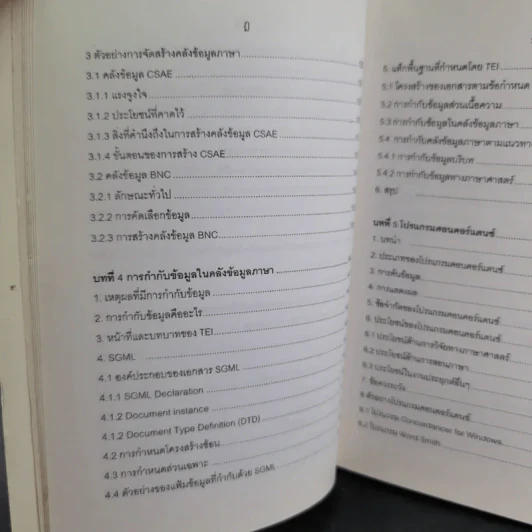 ญ
3 ตัวอย่างการจัดสร้างคลังข้อมูลภาษา
3.1 คลังข้อมูล CSAE
3.1.1 แรงจูงใจ
3.1.2 ประโยชน์ที่คาดไว้
3.1.3 สิ่งที่คำนึงถึงในการสร้างคลังข้อมูล CSAE
3.1.4 ขั้นตอนของการสร้าง CSAE
3.2 คลังข้อมูล BNC
3.2.1 ลักษณะทั่วไป
3.2.2 การคัดเลือกข้อมูล
3.2.3 การสร้างคลังข้อมูล BNC
บทที่ 4 การกำกับข้อมูลในคลังข้อมูลภาษา
1. เหตุผลที่มีการกำกับข้อมูล
2. การกำกับข้อมูลคืออะไร
3. หน้าที่และบทบาทของ TEI
4. SGML
4.1 องค์ประกอบของเอกสาร SGML
4.1.1 SGML Declaration
4.1.2 Document instance
4.1.2 Document Type Definition (DTD)
4.2 การกำหนดโครงสร้างซ้อน
4.3 การกำหนดส่วนเฉพาะ
4.4 ตัวอย่างของแฟ้มข้อมูลที่กำกับด้วย SGML
5. แท็กพื้นฐานที่กำหนดโดย TEI
5.1 โครงสร้างของเอกสารตามข้อกำหนด
5.2 การกำกับข้อมูลส่วนเนื้อความ
5.3 การกำกับข้อมูลในคลังข้อมูลภาษา
5.4 การกำกับคลังข้อมูลภาษาตามแนวทาง
5.4.1 การกำกับข้อมูลบริบท
5.4.2 การกำกับข้อมูลทางภาษาศาสตร์
6. สรุป
บทที่ 5 โปรแกรมคอนคอร์แดนซ์
1. บทนำ
2. ประเภทของโปรแกรมคอนคอร์แดนซ์
3. การค้นข้อมูล
4. การแสดงผล
5. ข้อจำกัดของโปรแกรมคอนคอร์แดนซ์
6. ประโยชน์ของโปรแกรมคอนคอร์แดนซ์
6.1 ประโยชน์ด้านการวิจัยทางภาษาศาสตร์
6.2 ประโยชน์ด้านการสอนภาษา
6.3 ประโยชน์ในงานประยุกต์อื่นๆ
7. ข้อควรระวัง
8. ตัวอย่างโปรแกรมคอนคอร์แดนซ์
8.1 โปรแกรม Concordancer for Windows
8.2 โปรแกรม Word Smith